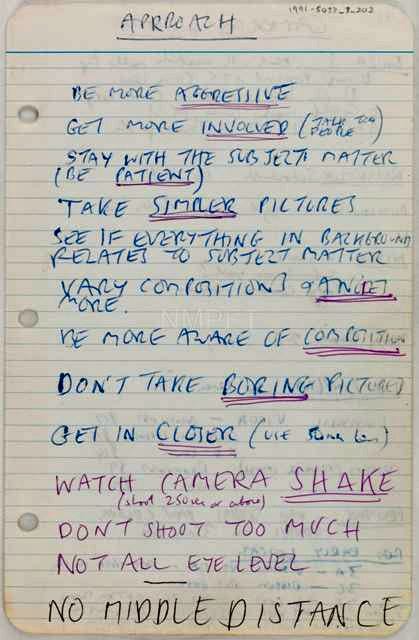 1991-5033_3_202
APRROACH
BE MORE AGGRESSIVE
GET MORE INVOLVED (TALK TOO
PEOPLE)
STAY WITH THE SUBJECT MATTER
(BE PATIENT)
TAKE SIMPLER PICTURES
SEE IF EVERYTHING IN BACKGROUND
RELATES TO SUBJECT MATTER
VARY COMPOSITIONS & ANGLES
MORE.
BE MORE AWARE OF COMPOSITION
DON'T TAKE BORING PICTURES
GET IN CLOSER (USE 50mm Lens)
WATCH CAMERA SHAKE
(shoot 250sec or above)
DONT SHOOT TOO MUCH
NOT ALL EYE LEVEL
NO MIDDLE DISTANCE